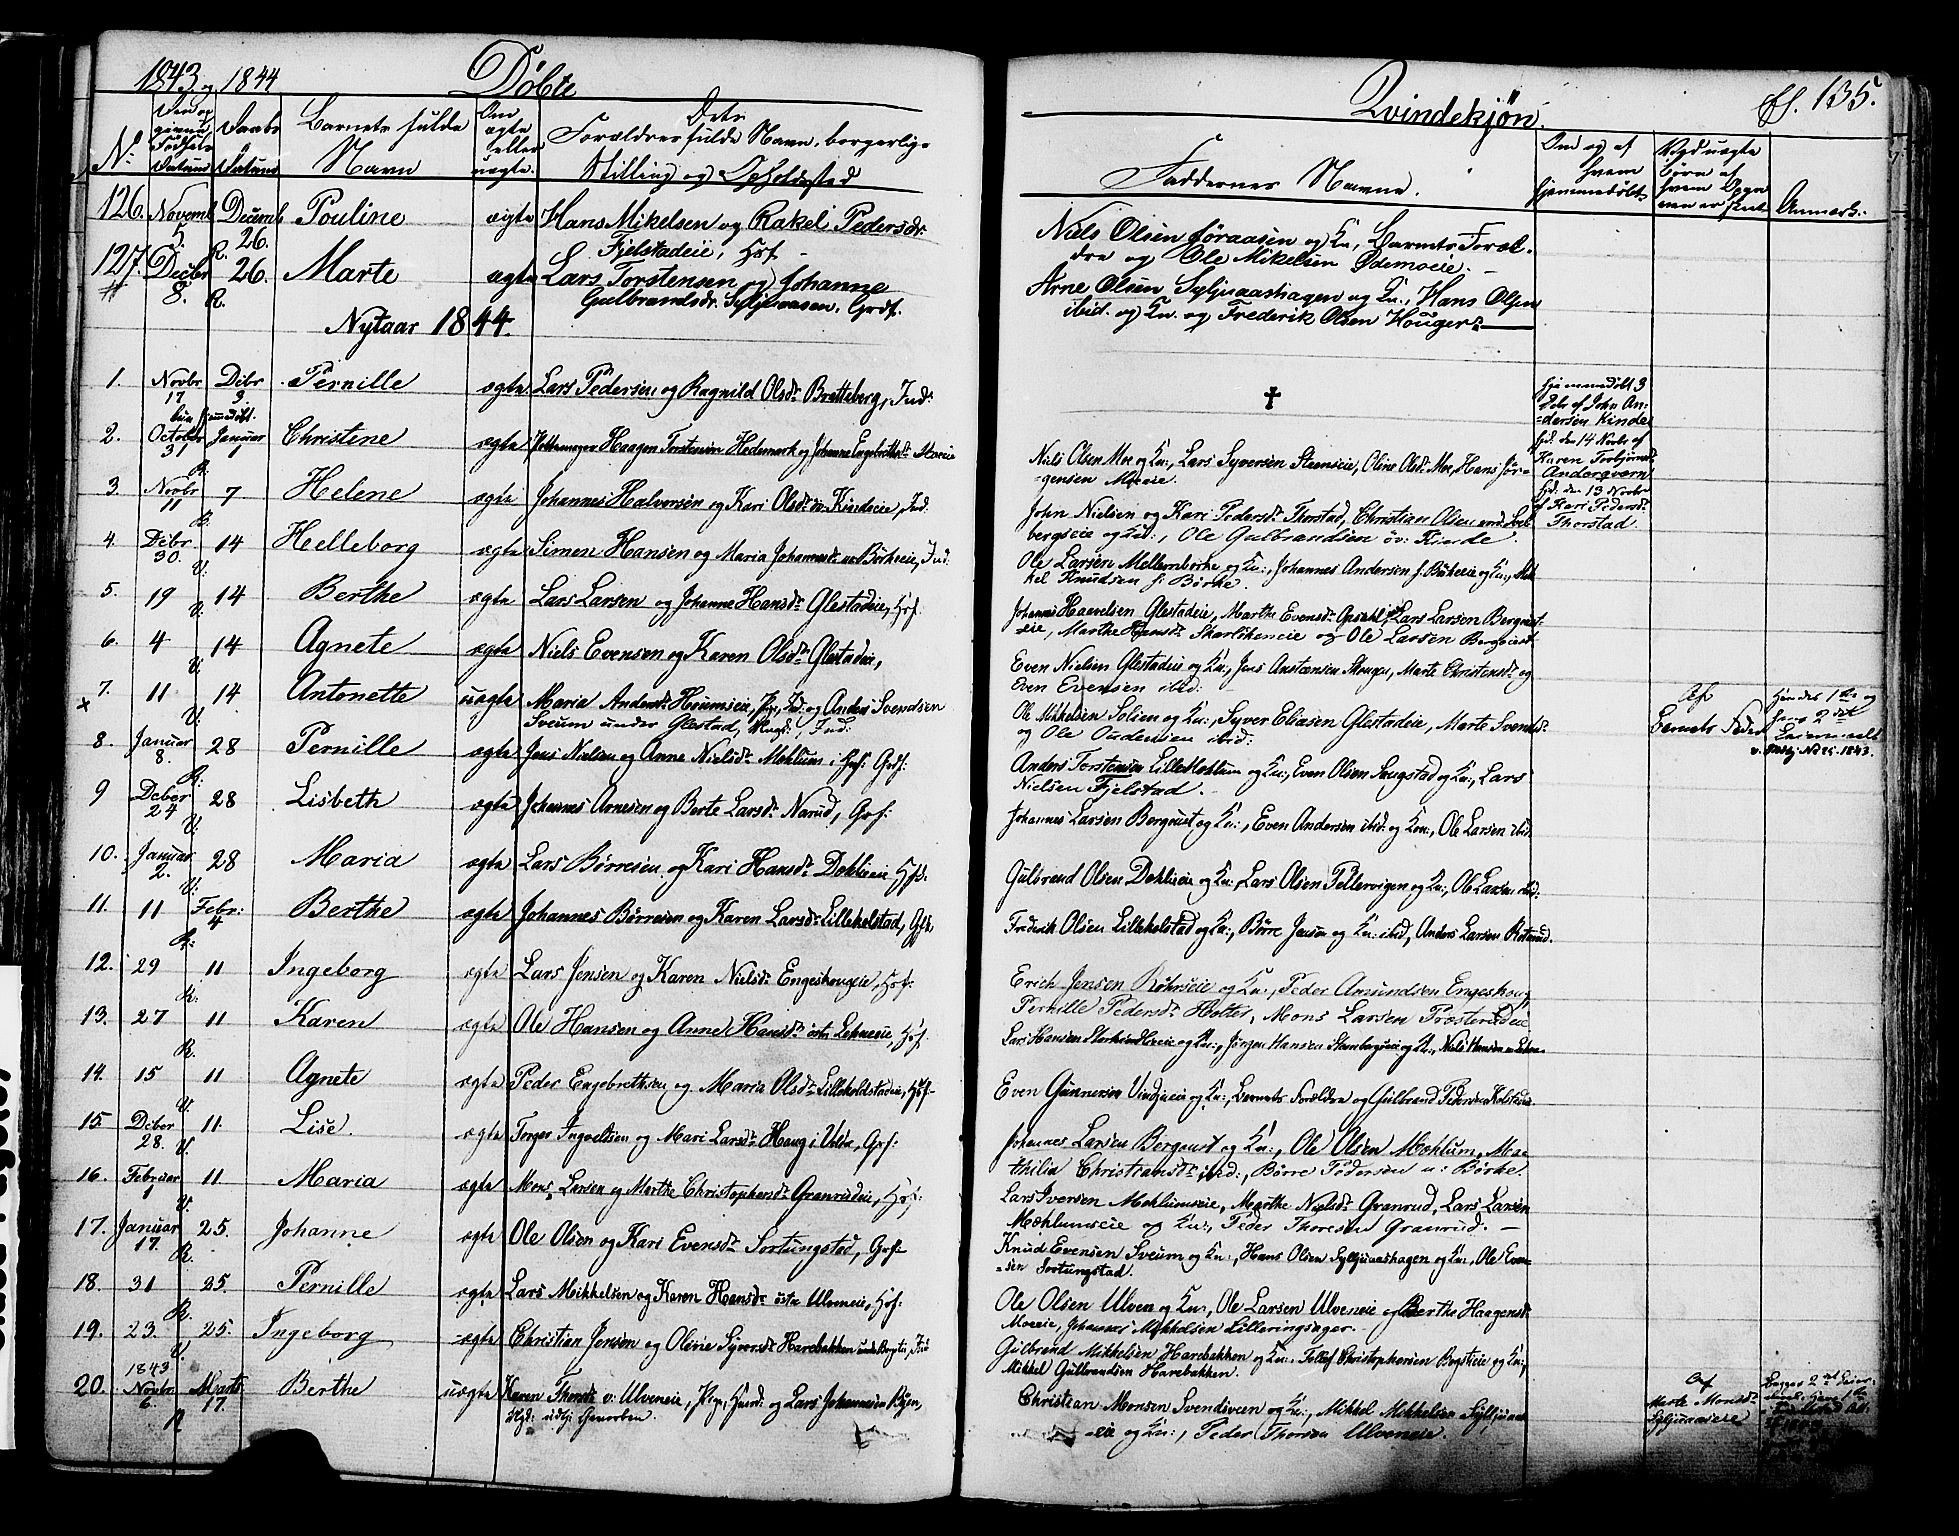 1843 og 1844 Døbte
Qvindekjøn. fl. 135.
No: Den op givne Fødsels Datum Daabs Datum Barnets fulde Navn Om ægte eller uægte. Dets Forældres fulde Navn, borgerlige Stilling og Opholdssted
Faddernes Navne. Om og af hvem hjemmedøbt. Ved uægte børn af hvem Anmærk:
126. Novemb 5. Decemb 26. R. Pouline ægte Hans Mikelsen og Rakel Pedersdr.
Fjelstadeie, Hsf.
Niels Olsen og Kn, Barnets Foræl-
dre og Ole Mikelsen Ødemoeie. -
127. Decbr 8. 26. R. Marte ægte Lars Torstensen og Johanne
Gulbrandsdr. Syljuaasen, Grdf.
Arne Olsen Syljuaashagen og Kn., Hans Olsen
ibid. og Kn. og Frederik Olsen Houger:
Nytaar 1844.
1. Novbr 17 Dcbr 3. Pernille ægte Lars Pedersen og Ragnild Olsdr. Bratteberg, Ind:
†
hjemmedøbt 3 Dcbr af John An-
dersen Kinde
2. October 31 Januar 1 Christine ægte Haagen Torstensen Hedemark og Johanne Engebretsdr. Moeeie
Niels Olsen Moe og Kn:, Lars Syversen Steenseie, Oline Olsdr. Moe, Hans Jør-
gensen Moeeie.
hjd. den 14 Novbr af
Karen Torbjørnsdr.
3. Novbr 11 R. 7 Helene ægte Johannes Halvorsen og Kari Olsdr. øv: Kindeeie, Ind.
John Nielsen og Kari Pedersdr. Thorstad, Christian Olsen
bergseie og Kn:, Ole Gulbrandsen øv: Kinde.
hjd: den 13 Novbr
af Kari Pedersdr.
Thorstad.
4. Dcbr 30. 14 Helleborg ægte Simen Hansen og Maria Johannesdr. Børkeeie, Ind:
Ole Larsen Mellembørke og Kn:, Johannes Andersen Børkeeie og Kn:, Mik-
kel Knudsen Børke.
5. 19 V: 14 Berthe ægte Lars Larsen og Johanne Hansdr. Glestadeie, Hsf.
Johannes Haavelsen Glestadeie, Marthe Evensdr. Opsahl, Lars Larsen Bergqvist-
eie, Marthe Hansdr. og Ole Larsen Bergqvist
6. 4 V. 14 Agnete ægte Niels Evensen og Karen Olsdr. Glestadeie,
Even Nielsen Glestadeie og Kn:, Jens Anstensen Skougen, Marte Christensdr. og
Even Evensen ibid:
7. 11 V. 14 Antonette uægte Maria Andersdr. Ind: og Anders Svendsen
Sveum under Glestad, Ungk., Ind:
Ole Mikkelsen Solien og Kn:, Syver Eliasen Glestadeie, Marte Svendsdr.
og Ole Oudensen ibid:
Af Barnets Fader
Hendes 1ste og
hans 2det
Leiermaal
No 25. 1843.
8. Januar 8. 28 Pernille ægte Jens Nielsen og Anne Nielsdr. Mohlum i Grdf:
Anders Torstensen LilleMohlum og Kn:, Even Olsen Sougstad og Kn:, Lars
Nielsen Fjelstad.
9 Dcber 24 28 Lisbeth ægte Johannes Arnesen og Berte Larsdr. Narud, Grf:
Johannes Larsen Bergqvist og Kn:, Even Andersen ibid: og Kn:, Ole Larsen ibid.
10. Januar 2. 28 Maria ægte Lars Børresen og Kari Hansdr. Dohlieie Hsf.
Gulbrand Olsen Dohlieie og Kn: Lars Olsen Pellervigen og Kn:, Ole Larsen ibid:
11. 11 Febr: 4 Berthe ægte Johannes Børresen og Karen Larsdr. Lillekolstad, Gf.
Frederik Olsen Lillekolstad og Kn:, Børre Jensen og Kn: ibid, Anders Larsen
12. 29 11 Ingeborg ægte Lars Jensen og Karen Nielsdr. Engeshougeie, Hsf:
Erich Jensen Røhneeie og Kn:, Peder Amundsen Engeshoug
Pernille Pedersdr. Mons Larsen
13. 27 11 Karen ægte Ole Hansen og Anne Hansdr. østre Lohneeie, Hsf.
Lars Hansen og Kn:, Jørgen Hansen Stenbergseie og Kn:, Niels Hansen
14. 15 11 Agnete ægte Peder Engebrethsen og Maria Olsdr. Lillekolstadeie, Hsf-
Even Gunnersen Vindjueie og Kn:, Barnets Forældre og Gulbrand Pedersen Kolstadeie
15. Dcber 28. 11. Lise. ægte Torger Ingvelsen og Mari Larsdr. Haug i Grf:
Johannes Larsen Bergqvist og Kn:, Ole Olsen Mohlum, Ma-
thilia Christiansdr. ibid:, Børre Pedersen n: Børke.
16. Februar 1 11 Maria ægte Mons Larsen og Marthe Christophersdr. Granrudeie, Hsf:
Lars Iversen Mohlumseie, Marthe Nielsdr. Granrud, Lars Larsen
Mohlumseie og Kn:, Peder Thoresen Granrud. -
17. Januar 17. 25. Johanne ægte Ole Olsen og Kari Evensdr. Sortungstad, Grf-
Knud Evensen Sveum og Kn:, Hans Olsen Syljuaashagen og Kn:, Ole Even-
sen Sortungstad.
18. 31 25. Pernille ægte Lars Mikkelsen og Karen Hansdr. østre Ulveneie, Hsf:
Ole Olsen Ulven og Kn:, Ole Larsen Ulveneie og Berthe Haagensdr.
Moeeie, Johannes Mikkelsen Lilleringsager.
19. 23. 25. Ingeborg ægte Christian Jensen og Oline Syversdr. Harebakken Ind:
Gulbrand Mikkelsen Harebakken og Kn:, Tollef Christophersen og Kn:,
Mikkel Gulbrandsen Harebakken.
20. 1843 Novbr 6. Marts 17. Berthe uægte Karen Thoresdr. v: Ulveneie, Pige, og Lars Johannesen
Christian Monsen Svendsveen og Kn:, Mikkel Mikkelsen Syljuaas-
eie og Kn:, Peder Thorsen Ulveneie.
Af Marte Monsdr.
Syljuaaseie